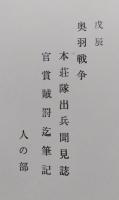 戊辰
奥羽戦争
本荘隊出兵聞見誌
官賞賊罸迄筆記
人の部